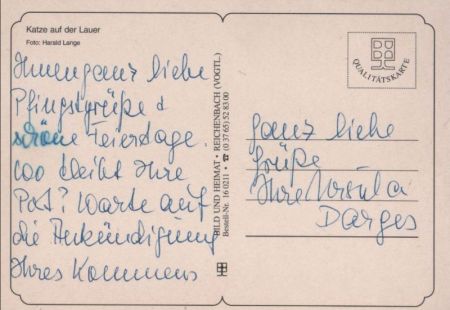 Katze auf der Lauer
Foto: Harald Lange
Ihnen ganz liebe
Pfingstgrüße &
schöne Feiertage.
Wo bleibt Ihre
Post? Warte auf
die Ankündigung
Ihres Kommens
BILD UND HEIMAT • REICHENBACH (VOGTL.)
Bestell-Nr. 16 0211 • ☎ (0 37 65) 52 83 00
QUALITÄTSKARTE
Ganz liebe
Grüße
Ihre Ursula
Darges